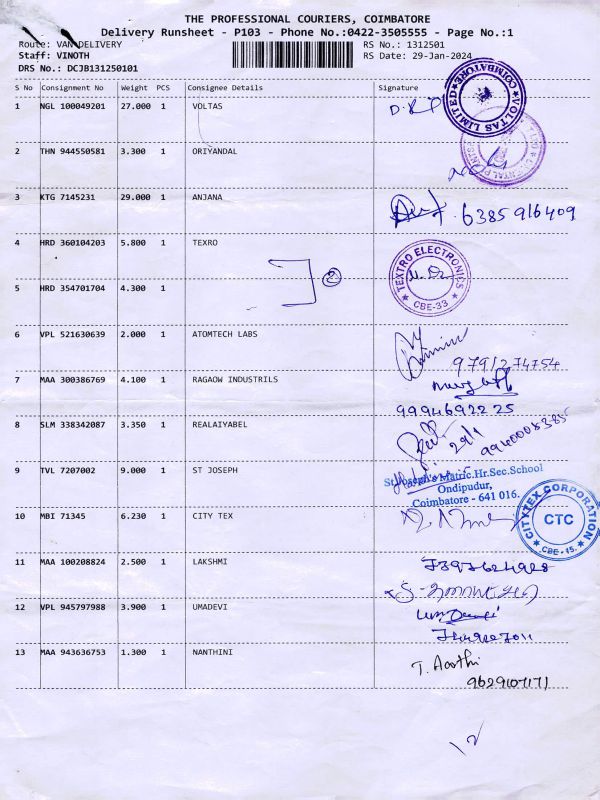 THE PROFESSIONAL COURIERS, COIMBATORE
Delivery Runsheet - P103 - Phone No.:0422-3505555 - Page No.:1
Route: VAN DELIVERY RS No.: 1312501
Staff: VINOTH RS Date: 29-Jan-2024
DRS No.: DCJB131250101
S No Consignment No Weight PCS Consignee Details Signature
1 NGL 100049201 27.000 1 VOLTAS
VOLTAS LIMITED COIMBATORE
2 THN 944550581 3.300 1 ORIYANDAL
3 KTG 7145231 29.000 1 ANJANA 6385916409
4 HRD 360104203 5.800 1 TEXRO
2
TEXTRO ELECTRONICS
CBE-33
5 HRD 354701704 4.300 1
6 VPL 521630639 2.000 1 ATOMTECH LABS
9791274754
7 MAA 300386769 4.100 1 RAGAOW INDUSTRILS
9994692225
8 SLM 338342087 3.350 1 REALAIYABEL
29/1
9 TVL 7207002 9.000 1 ST JOSEPH
St.Joseph's Matric.Hr.Sec.School
Ondipudur,
Coimbatore - 641 016.
10 MBI 71345 6.230 1 CITY TEX
CITYTEX CORPORATION
CTC
CBE-15.
11 MAA 100208824 2.500 1 LAKSHMI
12 VPL 945797988 3.900 1 UMADEVI
13 MAA 943636753 1.300 1 NANTHINI
T. Aarthi
9629107171